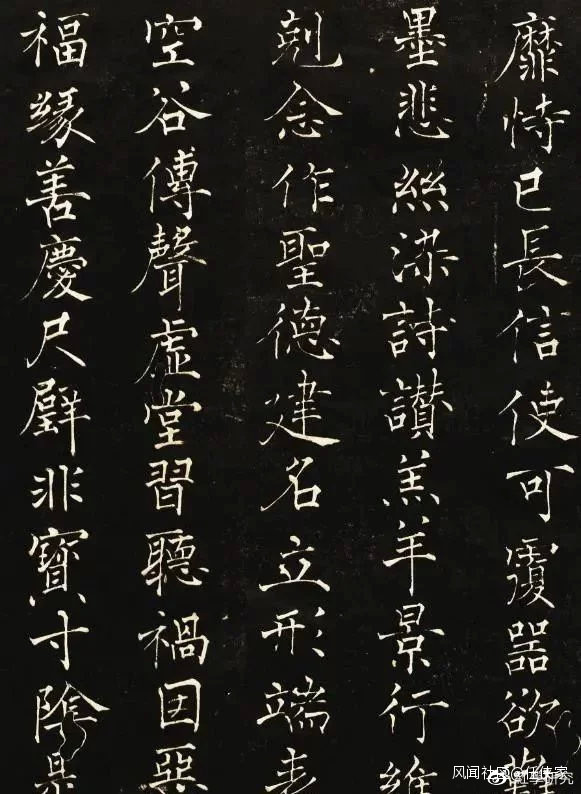 靡恃己長信使可覆器欲難
墨悲絲染詩讃羔羊景行維
剋念作聖德建名立形端表
空谷傳聲虛堂習聽禍因惡
福緣善慶尺璧非寶寸陰是
风闻社区@任侠家